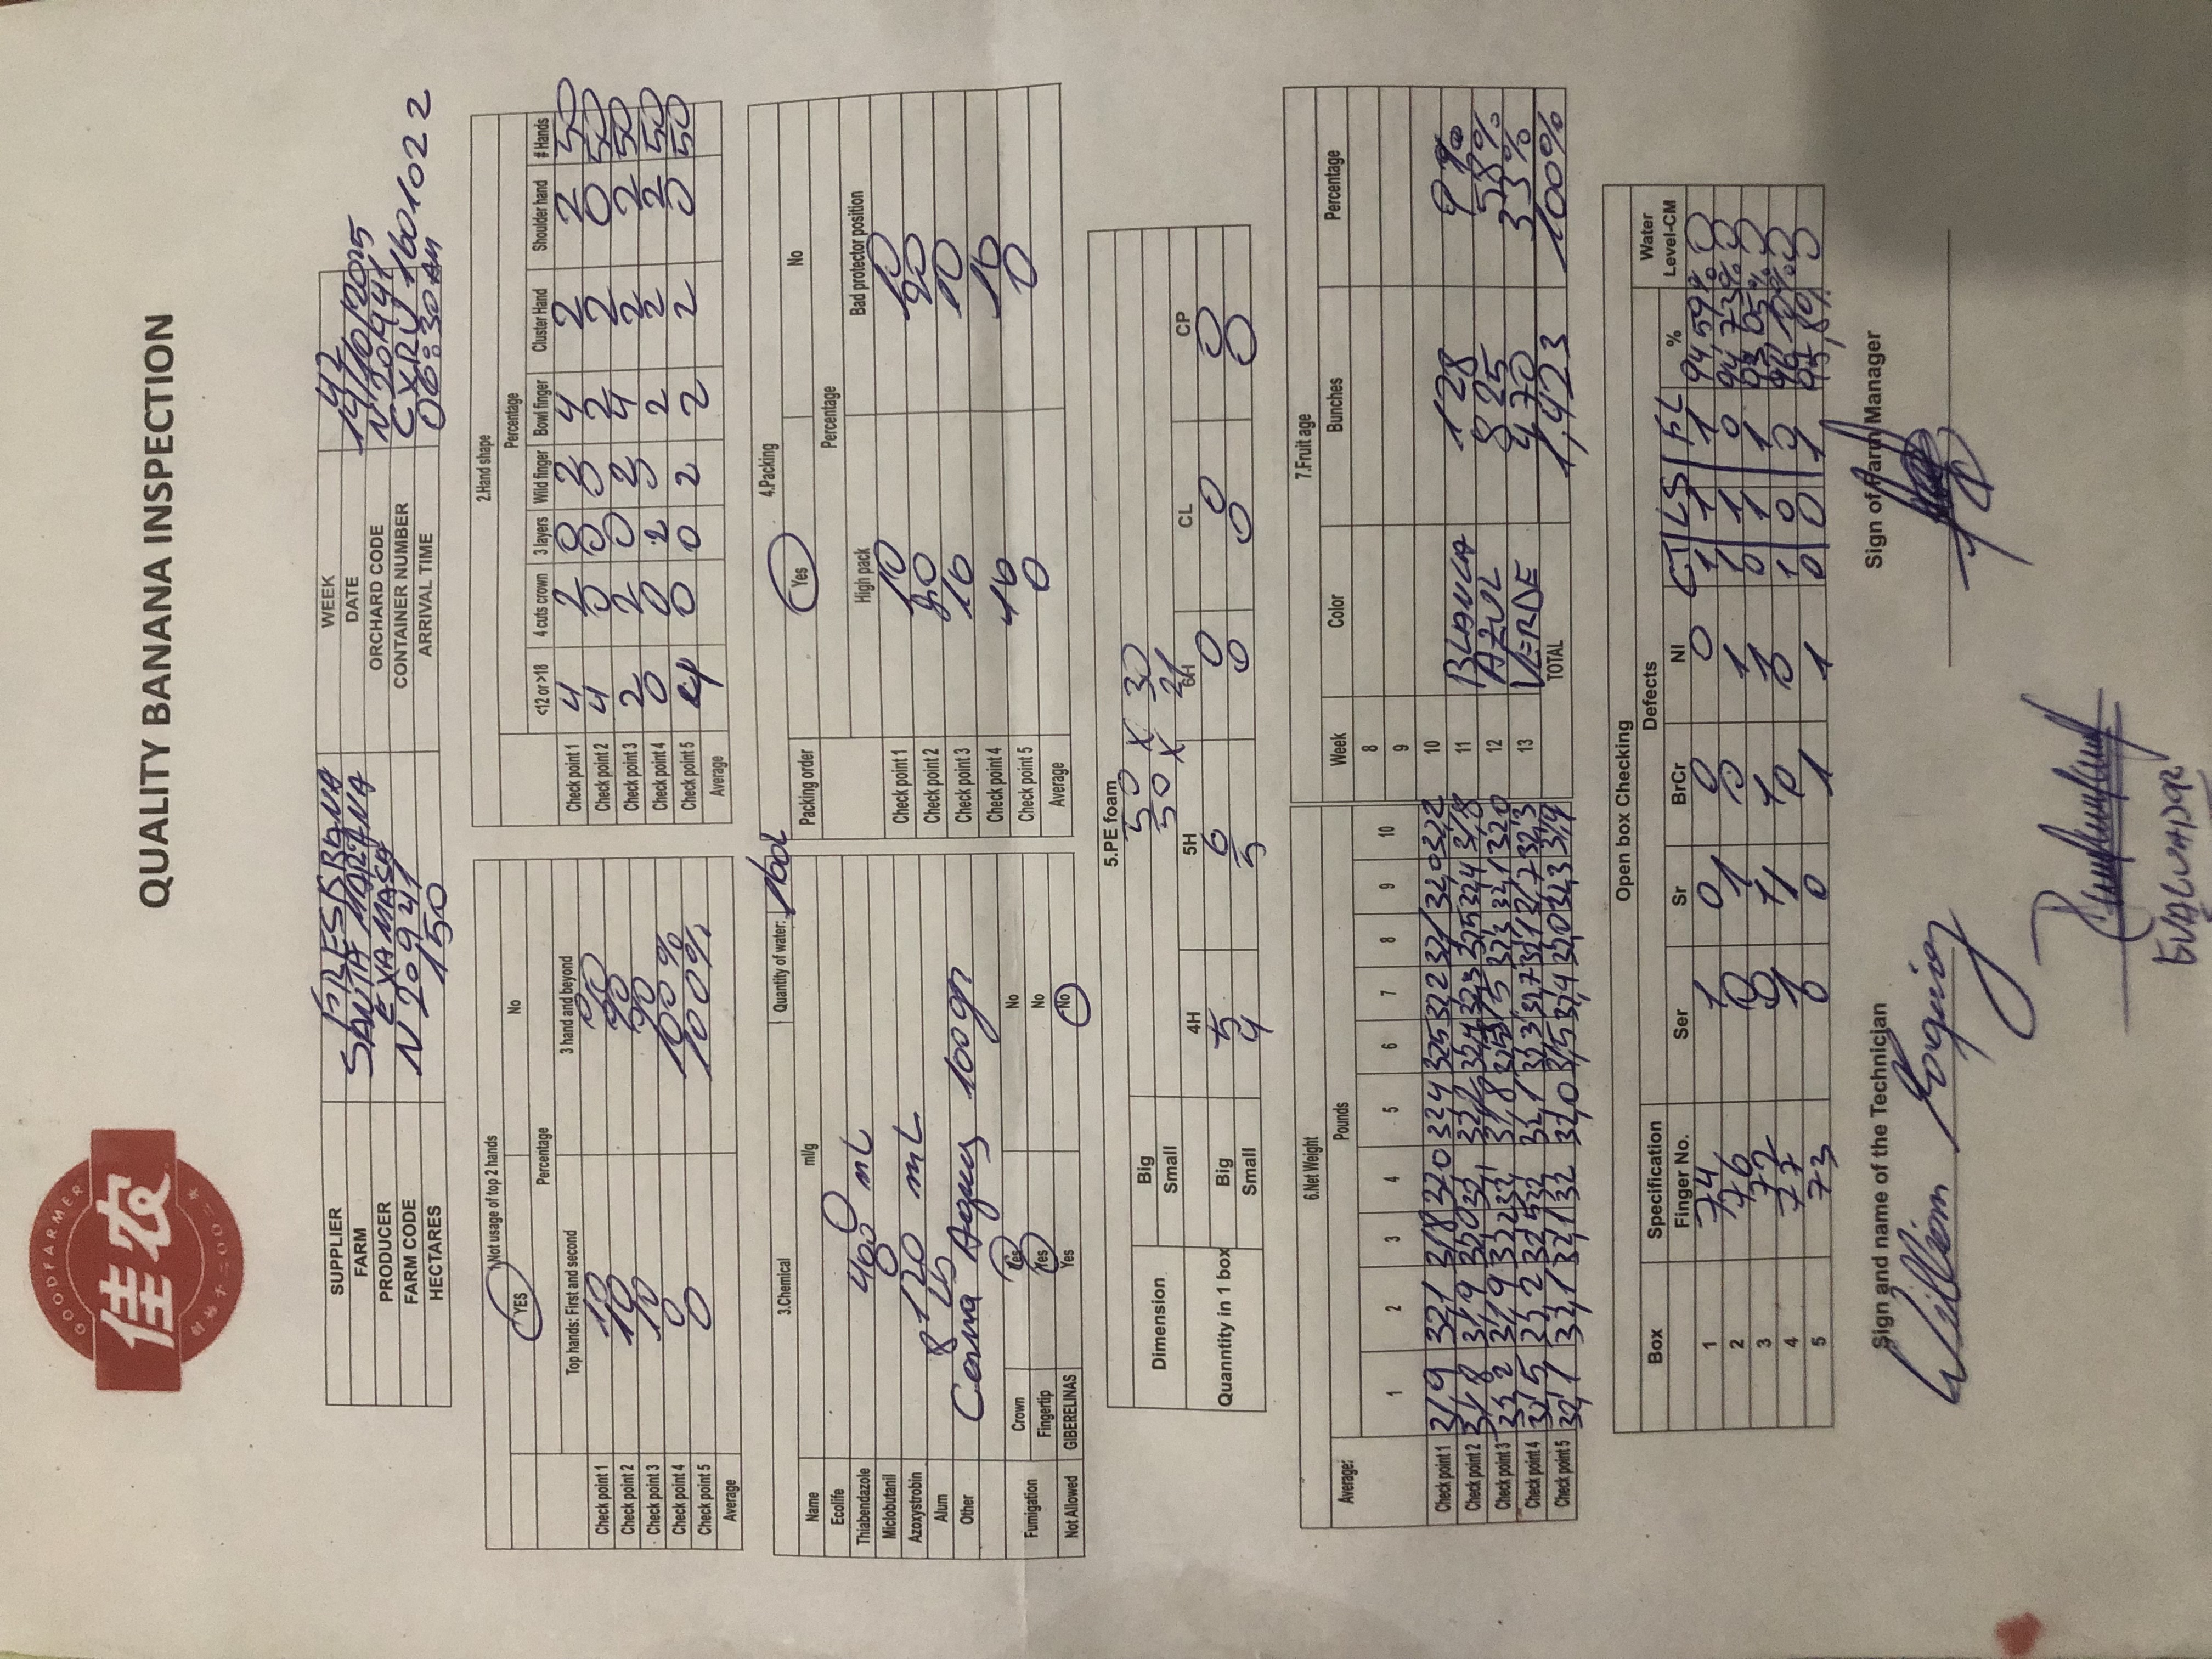 GOODFARMER
佳农
创始于二〇〇二年
QUALITY BANANA INSPECTION
SUPPLIER FRESBBANA WEEK 42
FARM SANTA MARIANA DATE 14/10/2025
PRODUCER EXAMASA ORCHARD CODE N20941
FARM CODE N20941 CONTAINER NUMBER CXRU 1601022
HECTARES 150 ARRIVAL TIME 06:30 AM
1.Not usage of top 2 hands
YES No
Percentage
Top hands: First and second 3 hand and beyond
Check point 1 10 90
Check point 2 10 90
Check point 3 10 90
Check point 4 0 100%
Check point 5 0 100%
Average
2.Hand shape
Percentage
<12 or >18 4 cuts crown 3 layers Wild finger Bowl finger Cluster Hand Shoulder hand # Hands
Check point 1 4 2 0 2 4 2 2 50
Check point 2 4 0 0 0 2 2 0 50
Check point 3 2 2 0 2 4 2 2 50
Check point 4 0 0 2 0 2 2 2 50
Check point 5 4 0 0 2 2 2 0 50
Average
3.Chemical Quantity of water: 160L
Name ml/g
Ecolife 0
Thiabendazole 400 mL
Miclobutanil 0
Azoxystrobin 120 mL
Alum 8 Lb
Other 100gr
Fumigation Crown Yes No
Fingertip Yes No
Not Allowed GIBERELINAS Yes No
4.Packing
Packing order Yes No
Percentage
High pack Bad protector position
Check point 1 10 10
Check point 2 20 20
Check point 3 10 10
Check point 4 10 10
Check point 5 0 0
Average
5.PE foam
Dimension Big 50 X 30
Small 50 X 21
4H 5H 6H CL CP
Quanntity in 1 box Big 5 6 0 0 0
Small 4 5 0 0 0
6.Net Weight
Average: Pounds
1 2 3 4 5 6 7 8 9 10
Check point 1 31,9 32,1 31,8 32,0 32,4 32,5 32,2 32,1 32,0 32,2
Check point 2 31,8 31,9 32,0 32,1 32,2 32,4 32,3 32,5 32,4 31,8
Check point 3 32,2 31,9 32,2 32, 31,8 32,5 31,5 32,3 32,1 32,0
Check point 4 32,5 32,2 32,5 32, 32,1 32,3 32,7 32,1 31,7 32,3
Check point 5 32,1 32,1 32,1 32 32,0 31,5 32,4 32,0 32,3 31,9
7.Fruit age
Week Color Bunches Percentage
8
9
10
11 BLANCA 128 9%
12 AZUL 825 58%
13 VERDE 470 33%
TOTAL 1,423 100%
Open box Checking
Box Specification Defects Water
Finger No. Ser Sr BrCr NI CT LS FL % Level-CM
1 74 1 0 0 0 1 1 1 94,59% 0
2 76 0 1 0 1 1 1 0 94,73% 0
3 72 0 1 1 1 0 1 1 93,05% 0
4 77 1 1 0 0 1 0 0 96,10% 0
5 73 0 0 1 1 0 0 1 95,8% 0
Sign and name of the Technician Sign of Farm Manager
William
EVALUADOR